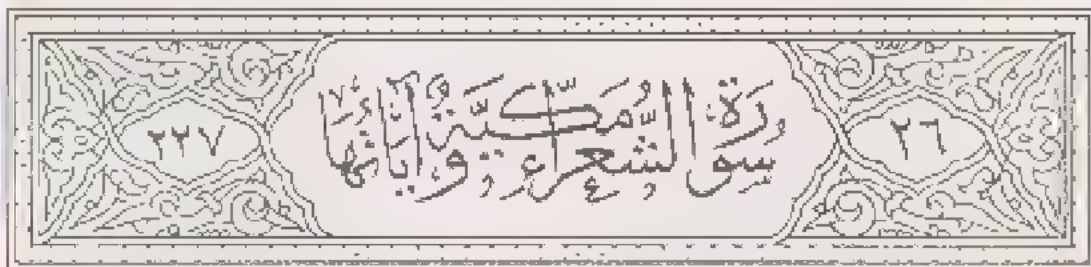 ٢٦
سورة الشعراء مكية وآياتها
٢٢٧